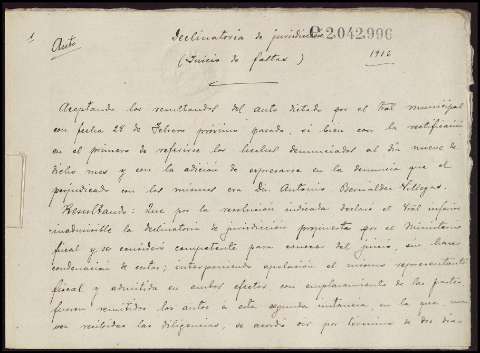 1
Auto
Declinatoria de jurisdicción
C2.042.996
(Juicio de faltas)
1916
Aceptando los resultandos del auto dictado por el Tral municipal
con fecha 28 de Febrero próximo pasado, si bien con la rectificación
en el primero de referirse los hechos denunciados al día nueve de
dicho mes y con la adición de expresarse en la denuncia que el
perjudicado con los mismos era Dn. Antonio Bernáldez Villegas.
Resultando: Que por la resolución indicada declaró el Tral inferior
inadmisible la declinatoria de jurisdicción propuesta por el Ministerio
fiscal y se consideró competente para conocer del juicio, sin hacer
condenación de costas; interponiendo apelación el mismo representante
fiscal y admitida en ambos efectos, con emplazamiento de las partes
fueron remitidos los autos a esta segunda instancia, en la que, una
vez recibidas las diligencias, se acordó oir por término de dos dia-